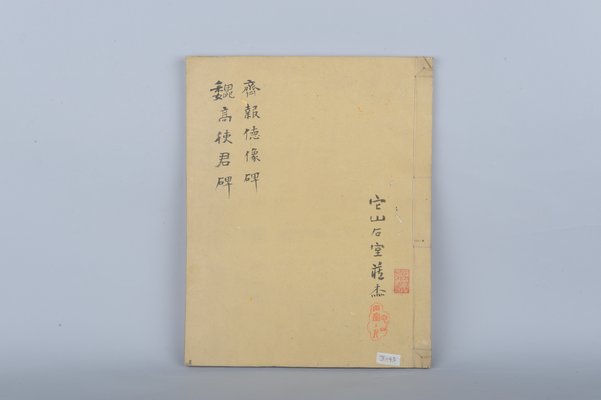 齊報德像碑
魏高使君碑
石室藏